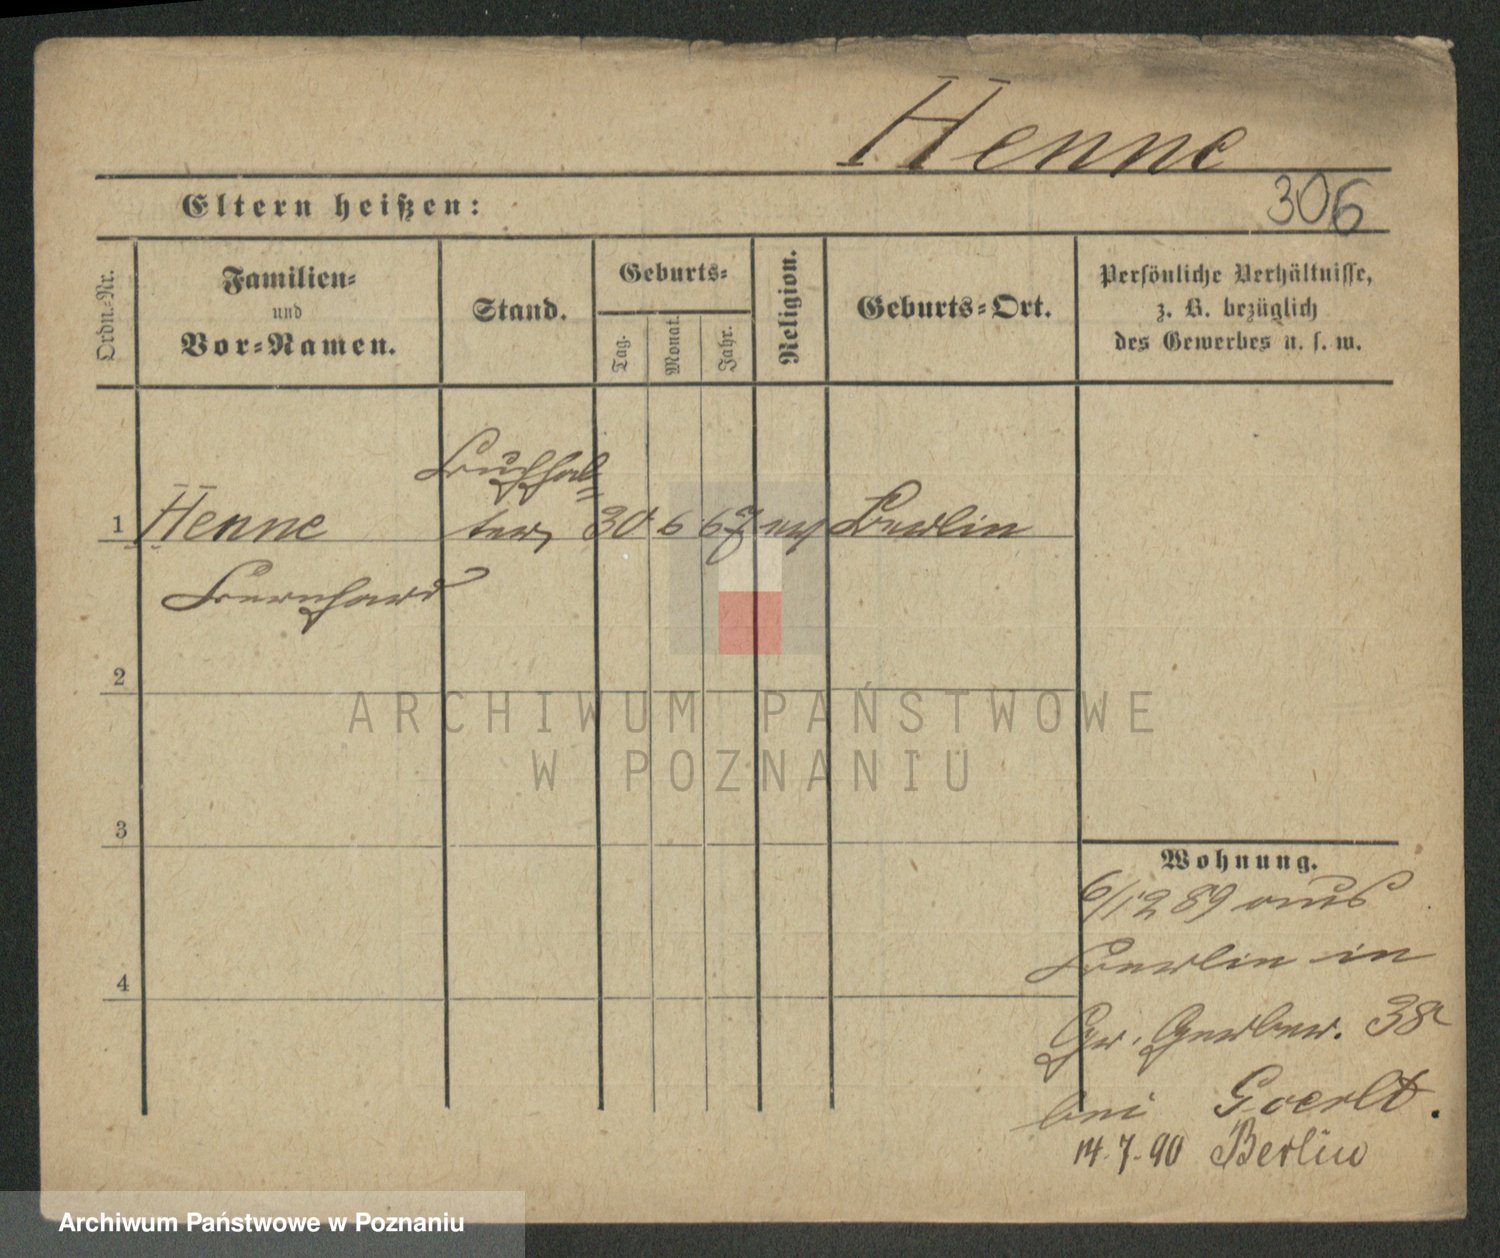 Henne
306
Eltern heißen:
Ordn.-Nr.
Familien-
und
Vor-Namen.
Stand.
Geburts-
Tag.
Monat.
Jahr.
Religion.
Geburts-Ort.
Persönliche Verhältnisse,
z. B. bezüglich
des Gewerbes u. s. w.
Buchhal-
1 Henne ter, 30 6 67 ev Berlin
Bernhard
2
ARCHIWUM PAŃSTWOWE
W POZNANIU
3
Wohnung.
6/12 89 aus
Berlin in
4
Gr. Gerber. 38
bei Goerlt.
14.7.90 Berlin
Archiwum Państwowe w Poznaniu